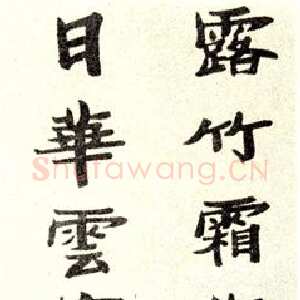 露竹霜
日華雲
Shufawang.CN